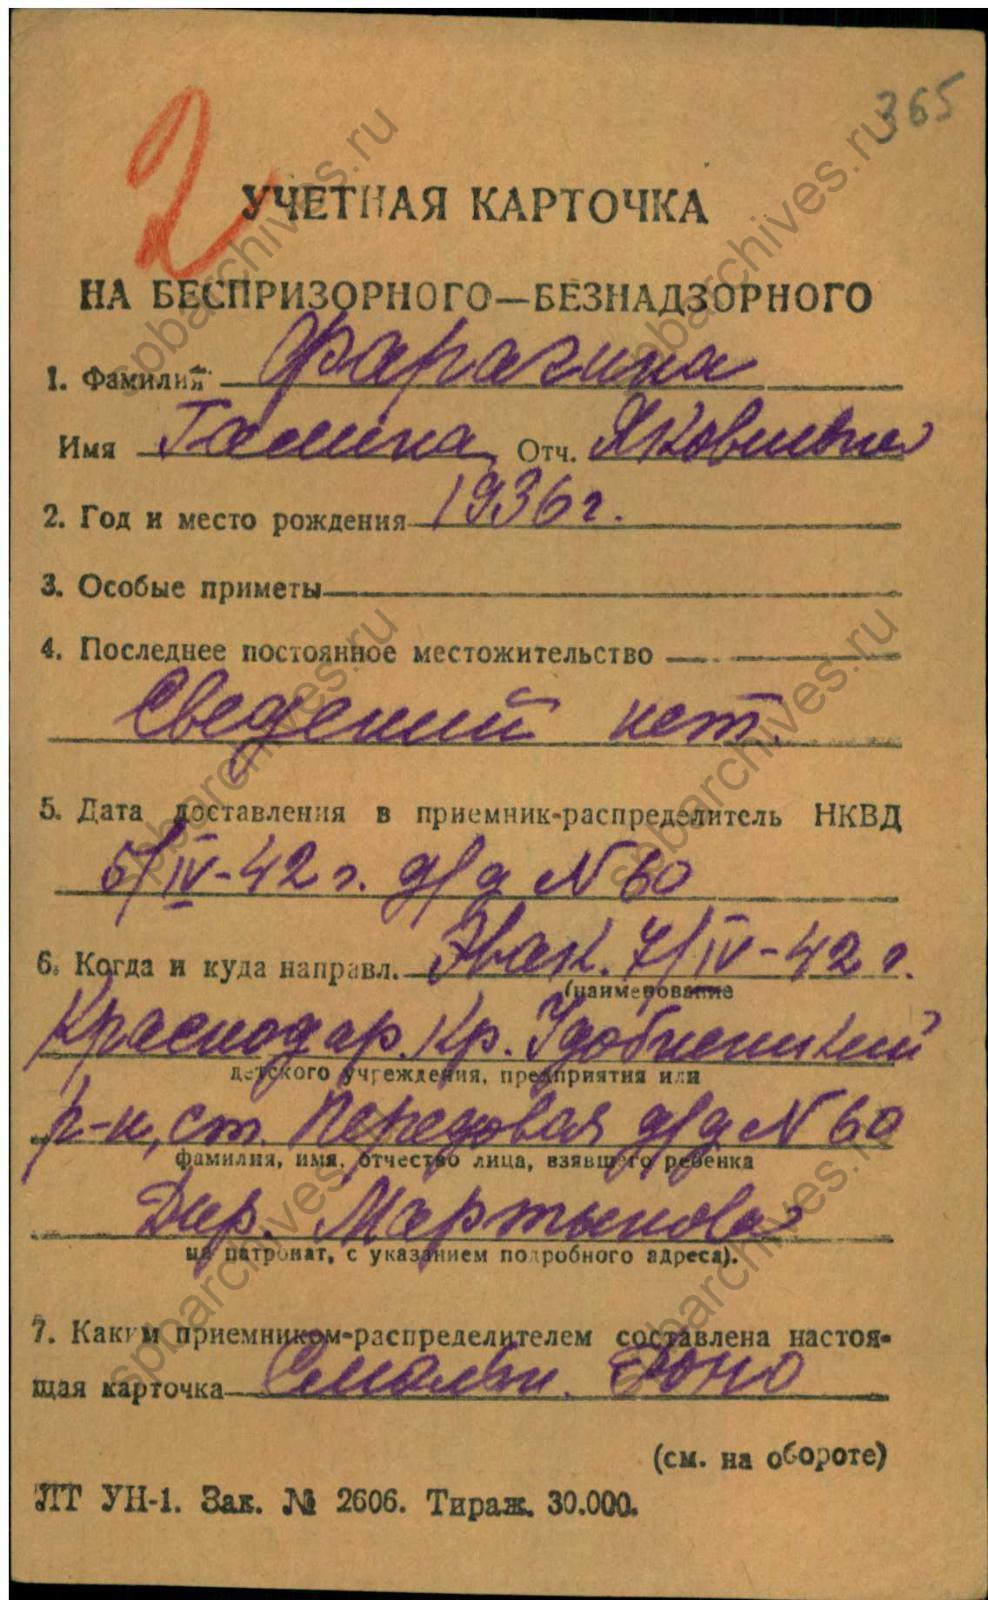 365
2
УЧЕТНАЯ КАРТОЧКА
НА БЕСПРИЗОРНОГО—БЕЗНАДЗОРНОГО
1. Фамилия Фарагина
Имя Галина Отч. Яковлевна
2. Год и место рождения 1936 г.
3. Особые приметы
4. Последнее постоянное местожительство
Сведений нет.
5. Дата доставления в приемник-распределитель НКВД
5/IV-42 г. д/д N 60
6. Когда и куда направл. Эвак. 7/IV-42 г.
(наименование
Краснодар. Кр. Удобненский
детского учреждения, предприятия или
р-н, ст. Передовая д/д N 60
фамилия, имя, отчество лица, взявшего ребенка
Дир. Мартынова
на патронат, с указанием подробного адреса).
7. Каким приемником-распределителем составлена настоя-
щая карточка Смольн. РОНО
(см. на обороте)
ЛТ УН-1. Зак. № 2606. Тираж. 30.000.
spbarchives.ru
spbarchives.ru
spbarchives.ru
spbarchives.ru
spbarchives.ru
spbarchives.ru